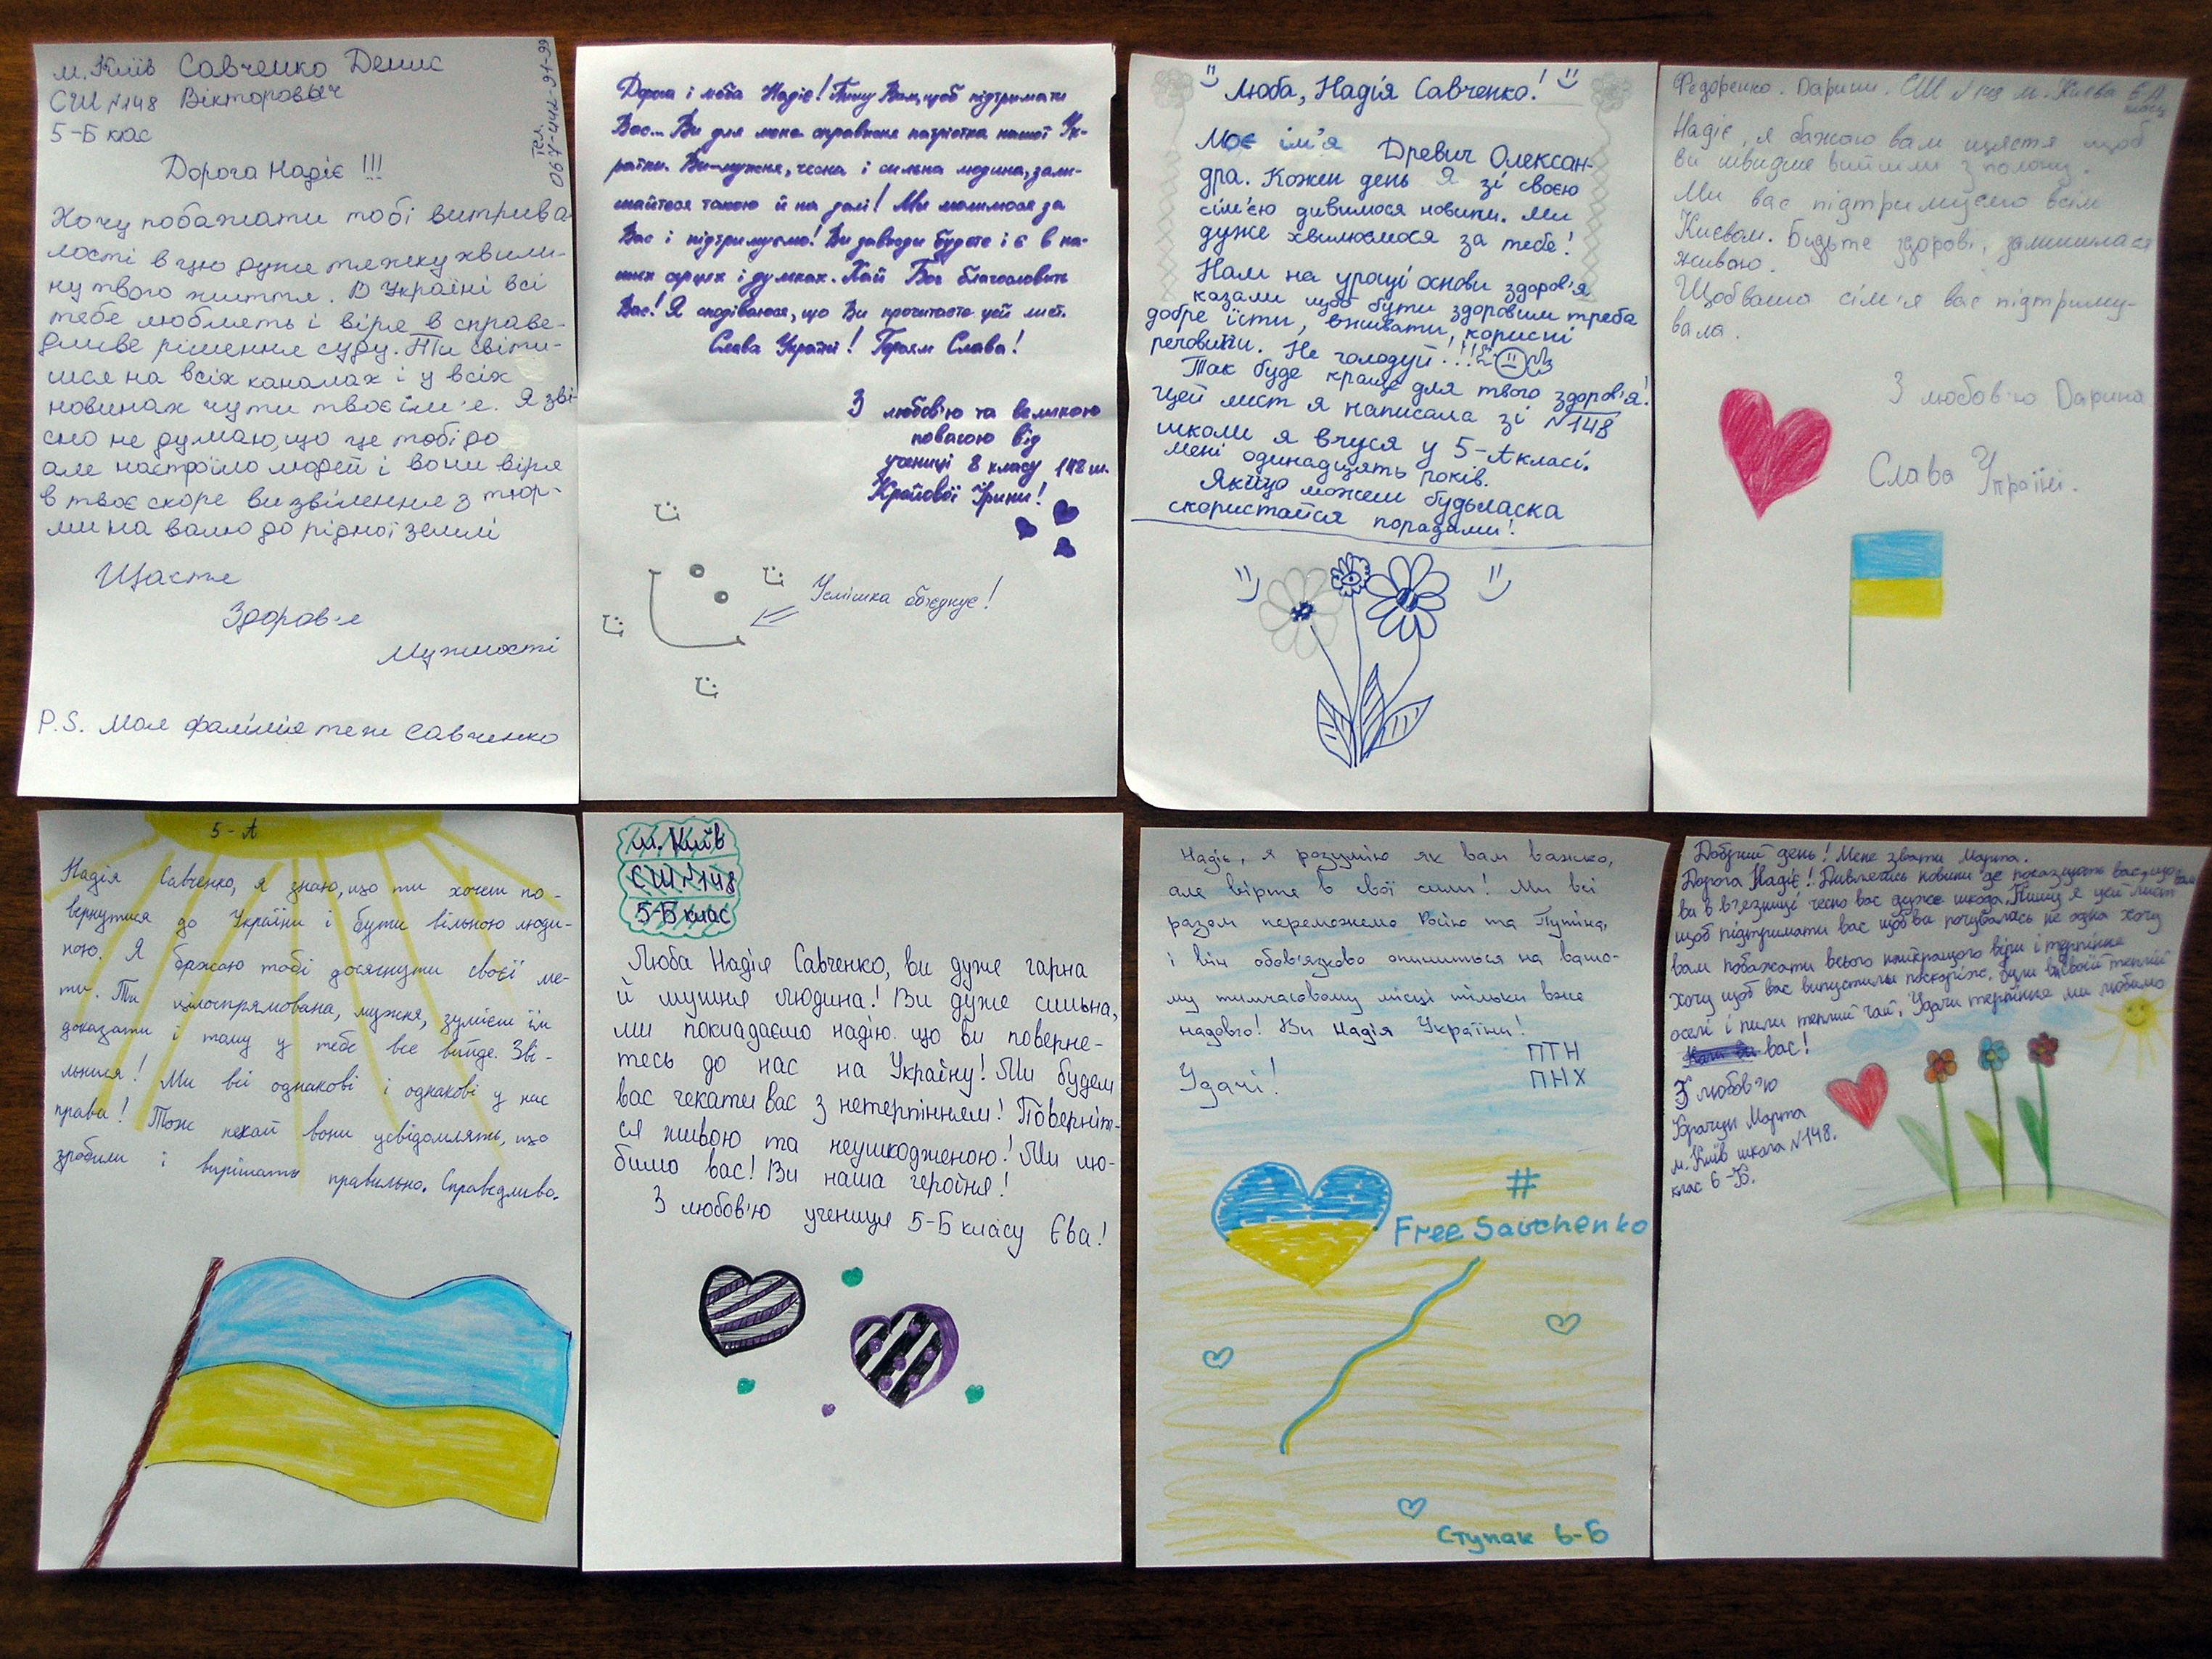 м. Київ Савченко Денис
СШ №148 Вікторовыч
5-Б клас
тел.
067-442-91-99
Дорога Надіє !!!
Хочу побажати тобі витрива
лості в цю дуже тяжку хвили-
ну твого життя. В Україні всі
тебе люблять і віря в справе-
дливе рішення суду. Ти світи-
шся на всіх каналах і у всіх
новинах чути твоє ім'я. Я зві-
сно не думаю, що це тобі до
але настроїло людей і вони віря
в твоє скоре визвілення з тюр-
ми на валю до рідної землі
Щастя
Здоров'я
Мужності
P.S. Моя фамілія теж Савченко
Дорога і люба Надіє! Пишу Вам, щоб підтримати
Вас... Ви для мене справжня патріотка нашої Ук-
раїни. Ви-мужня, чесна і сильна людина, зали-
шайтеся такою й на далі! Ми молимося за
Вас і підтримуємо! Ви завжди будете і є в на-
ших серцях і думках. Хай Бог благословить
Вас! Я сподіваюся, що Ви прочитаєте цей лист.
Слава Україні! Героям Слава!
З любов'ю та великою
повагою від
учениці 8 класу 148 ш.
Ірини!
Усмішка об'єднує!
Люба, Надія Савченко!
Моє ім'я Древич Олексан-
дра. Кожен день я зі своєю
сім'єю дивимося новини. Ми
дуже хвилюємося за тебе!
Нам на уроці основи здоров'я
казали щоб бути здоровим треба
добре їсти, вживати, корисні
речовини. Не голодуй!!!
Так буде краще для твого здоров'я!
Цей лист я написала зі №148
школи я вчуся у 5-А класі.
Мені одинадцять років.
Якщо можеш будьласка
скористайся порадами!
Федоренко. Дарини. СШ №148 м. Києва
Надіє, я бажаю вам щястя щоб
ви швидше вийшли з полону.
Ми вас підтримуємо всім
Києвом. Будьте здорові, залишилася
живою.
Щоб ваша сім'я вас підтриму-
вала.
З любов'ю Дарина
Слава Україні.
5-А
Надія Савченко, я знаю, що ти хочеш по-
вернутися до України і бути вільною люди-
ною. Я бажаю тобі досягнути своєї ме-
ти. Ти цілоспрямована, мужня, зумієш їм
доказати і тому у тебе все вийде. Зві-
льнися! Ми всі однакові і однакові у нас
права! Тож нехай вони усвідомлять, що
зробили і вирішать правильно. Справедливо.
м. Київ
СШ №148
5-Б клас
Люба Надія Савченко, ви дуже гарна
й мужня людина! Ви дуже сильна,
ми покладаємо надію що ви поверне-
тесь до нас на Україну! Ми будем
вас чекати вас з нетерпінням! Повертіт-
ся живою та неушкодженою! Ми лю-
бимо вас! Ви наша героїня!
З любов'ю учениця 5-Б класу Єва!
Надіє, я розумію як вам важко,
але вірте в свої сили! Ми всі
разом переможемо Росію та Путіна,
і він обов'язково опиниться на вашо-
му тимчасовому місці тільки вже
надовго! Ви Надія України!
Удачі!
ПТН
ПНХ
#
Free Savchenko
Ступак 6-Б
Добрий день! Мене звати Марта.
Дорога Надіє! Дивлячись новини де показують вас, що
ви в в'язниці чесно вас дуже шкода. Пишу я цей лист
щоб підтримати вас щоб ви почувались не одна хочу
вам побажати всього найкращого віри і терпіння
хочу щоб вас випустили поскоріж. були в своїй теплій
оселі і пили теплий чай. Удачи терпіння ми любимо
вас!
З любов'ю
Марта
м. Київ школа №148.
клас 6-Б.